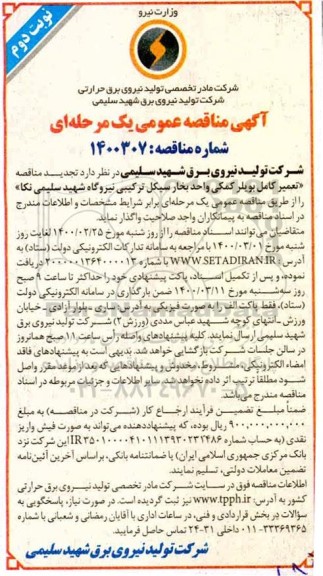 وزارت نیرو
نوبت دوم
شرکت مادر تخصصی تولید نیروی برق حرارتی
شرکت تولید نیروی برق شهید سلیمی
آگهی مناقصه عمومی یک مرحله‌ای
شماره مناقصه: ۱۴۰۰۳۰۷
شرکت تولید نیروی برق شهید سلیمی در نظر دارد تجدید مناقصه
«تعمیر کامل بویلر کمکی واحد بخار سیکل ترکیبی نیروگاه شهید سلیمی نکا»
را از طریق مناقصه عمومی یک مرحله‌ای برابر شرایط مشخصات و اطلاعات مندرج
در اسناد مناقصه به پیمانکاران واجد صلاحیت واگذار نماید.
متقاضیان می‌توانند اسناد مناقصه را از روز شنبه مورخ ۱۴۰۰/۰۲/۲۵ لغایت روز
شنبه مورخ ۱۴۰۰/۰۳/۰۱ با مراجعه به سامانه تدارکات الکترونیکی دولت (ستاد) به
آدرس WWW.SETADIRAN.IR با شماره ۲۰۰۰۰۰۱۳۶۴۰۰۰۰۱۳ دریافت
نموده، و پس از تکمیل اسناد، پاکت پیشنهادی خود را حداکثر تا ساعت ۹ صبح
روز سه‌شنبه مورخ ۱۴۰۰/۰۳/۱۱ ضمن بارگذاری در سامانه الکترونیکی دولت
(ستاد)، فقط پاکت الف را به صورت فیزیکی به آدرس ساری - بلوار آزادی - خیابان
ورزش - انتهای کوچه شهید عباس مددی (ورزش ۲) شرکت تولید نیروی برق
شهید سلیمی ارسال نمایند. کلیه پیشنهادهای واصله رأس ساعت ۱۱ صبح همانروز
در سالن جلسات شرکت بازگشایی خواهد شد. بدیهی است به پیشنهادهای فاقد
امضاء الکترونیکی، مشروط، مخدوش و پیشنهادهایی که بعد از موعد مقرر واصل
شود مطلقا ترتیب اثر داده نخواهد شد. سایر اطلاعات و جزئیات مربوطه در اسناد
مناقصه مندرج می‌باشد.
ضمناً مبلغ تضمین فرآیند ارجاع کار (شرکت در مناقصه) به مبلغ
۹۰۰,۰۰۰,۰۰۰ ریال بوده، که پیشنهاددهنده می‌تواند به صورت فیش واریز
نقدی (به حساب شماره این شرکت نزد
بانک مرکزی جمهوری اسلامی ایران) یا ضمانتنامه بانکی، براساس آخرین آئین‌نامه
تضمین معاملات دولتی، تسلیم نمایند.
اطلاعات مناقصه فوق در سایت شرکت مادر تخصصی تولید نیروی برق حرارتی
کشور به آدرس: www.tpph.ir نیز ثبت گردیده است. در صورت نیاز، پاسخگویی به
سؤالات در بخش قراردادی و فنی، در ساعات اداری با آقایان رمضانی و شعبانی با شماره
۰۱۱-۳۳۳۶۹۳۶۵ داخلی ۳۱-۲۴ تماس حاصل فرمایید.
شرکت تولید نیروی برق شهید سلیمی